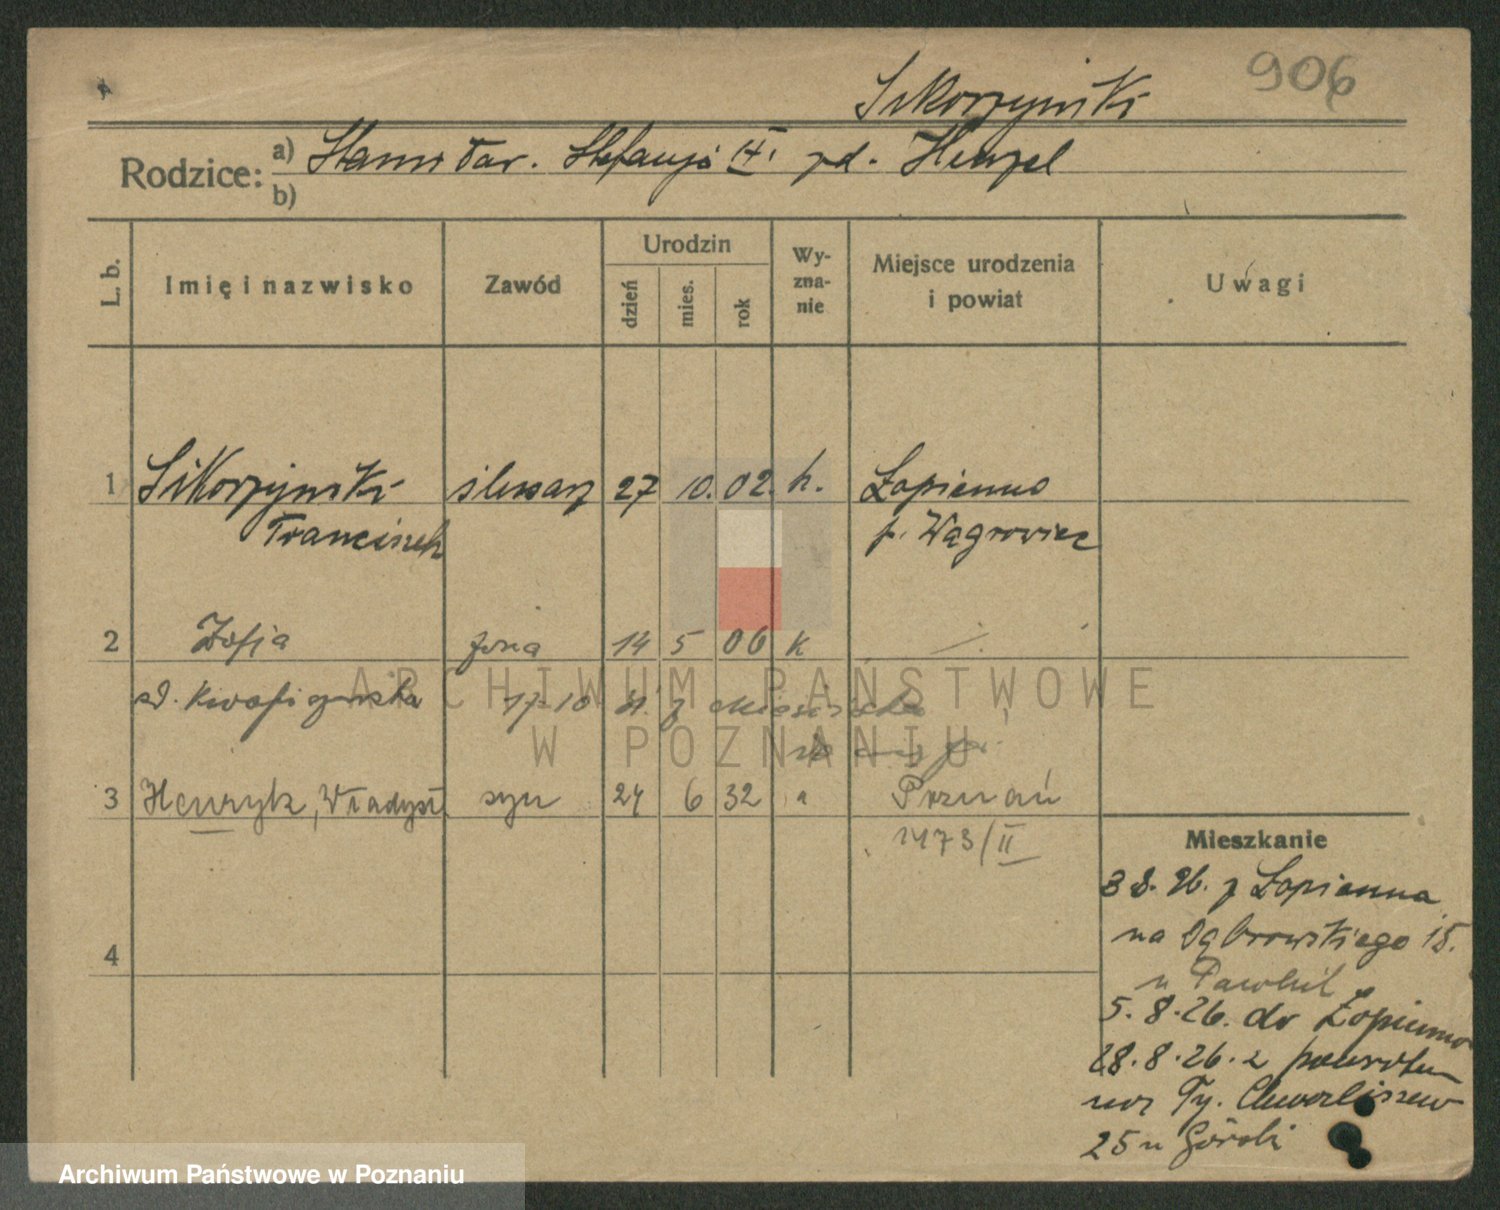 906
Sikorzyński
Rodzice: a) Stanisław. Stefanja H. zd. Henzel
b)
L. b.
Imię i nazwisko
Zawód
Urodzin
dzień
mies.
rok
Wy-
zna-
nie
Miejsce urodzenia
i powiat
Uwagi
1 Sikorzyński ślusarz 27 10. 02. k. Łopienno
Franciszek p. Wągrowiec
2 Zofja żona 14 5 06 k
17-10
3 Henryk, Władysł. syn 24 6 32 Poznań
1473/II
Mieszkanie
3 8. 26. z Łopienna
na Dąbrowskiego 15.
u
5. 8. 26. do Łopienno
4
28. 8. 26. z powrotem
25 u Górski
ARCHIWUM PAŃSTWOWE
W POZNANIU
Archiwum Państwowe w Poznaniu